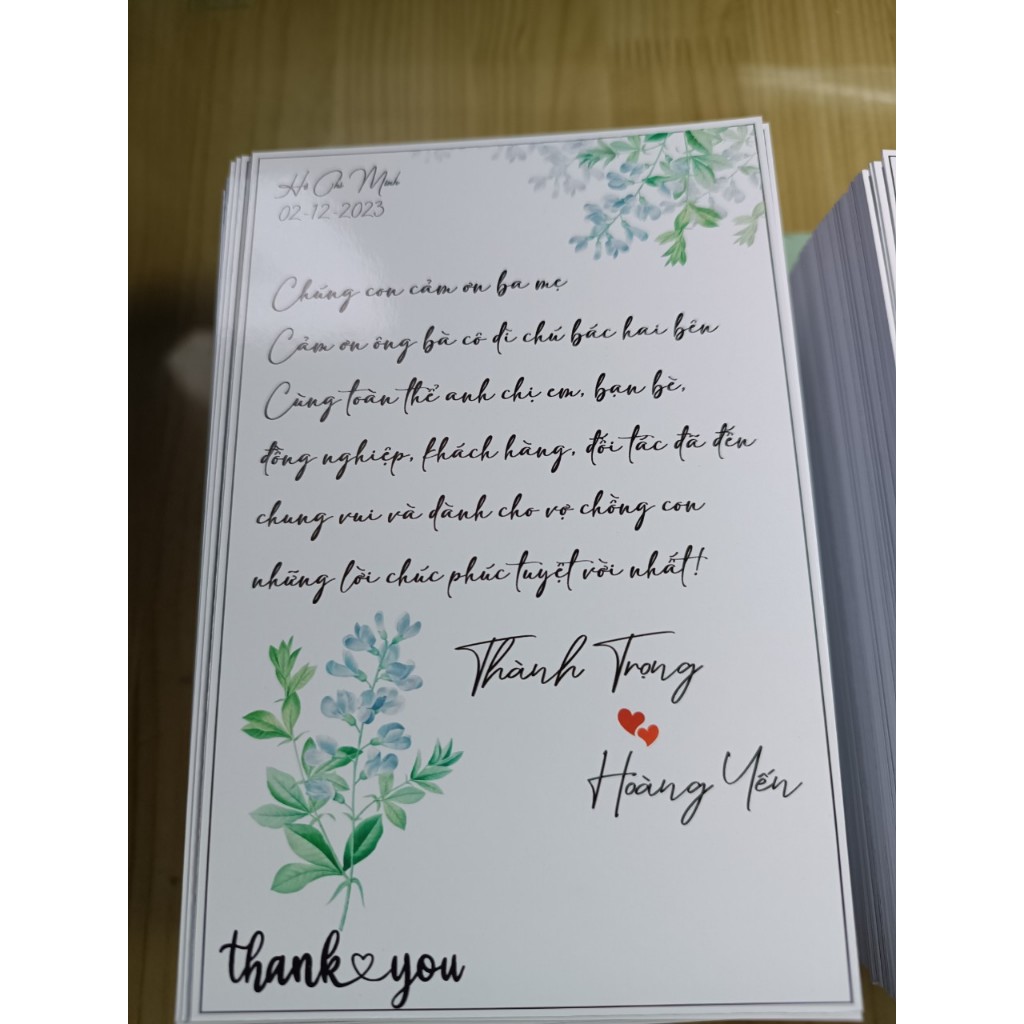 Hồ Chí Minh
02-12-2023
Chúng con cảm ơn ba mẹ
Cảm ơn ông bà cô dì chú bác hai bên
Cùng toàn thể anh chị em, bạn bè,
đồng nghiệp, khách hàng, đối tác đã đến
chung vui và dành cho vợ chồng con
những lời chúc phúc tuyệt vời nhất!
Thành Trọng
Hoàng Yến
thank you